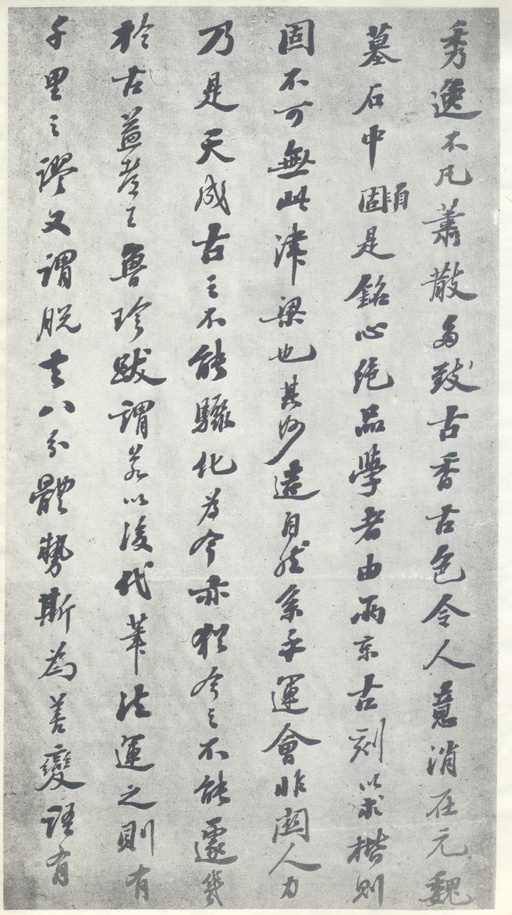 秀逸不凡蕭散多致古香古色令人意消在元魏
墓石中固須是銘心絕品學者由兩京古刻以求楷則
固不可無此津梁也其妙造自然系乎運會非關人力
乃是天成古之不能驟化為今亦猶今之不能遽幾
於古蓋考之魯珍跋謂若以後代筆法運之則有
千里之謬又謂脫去八分體勢斯為善變語有